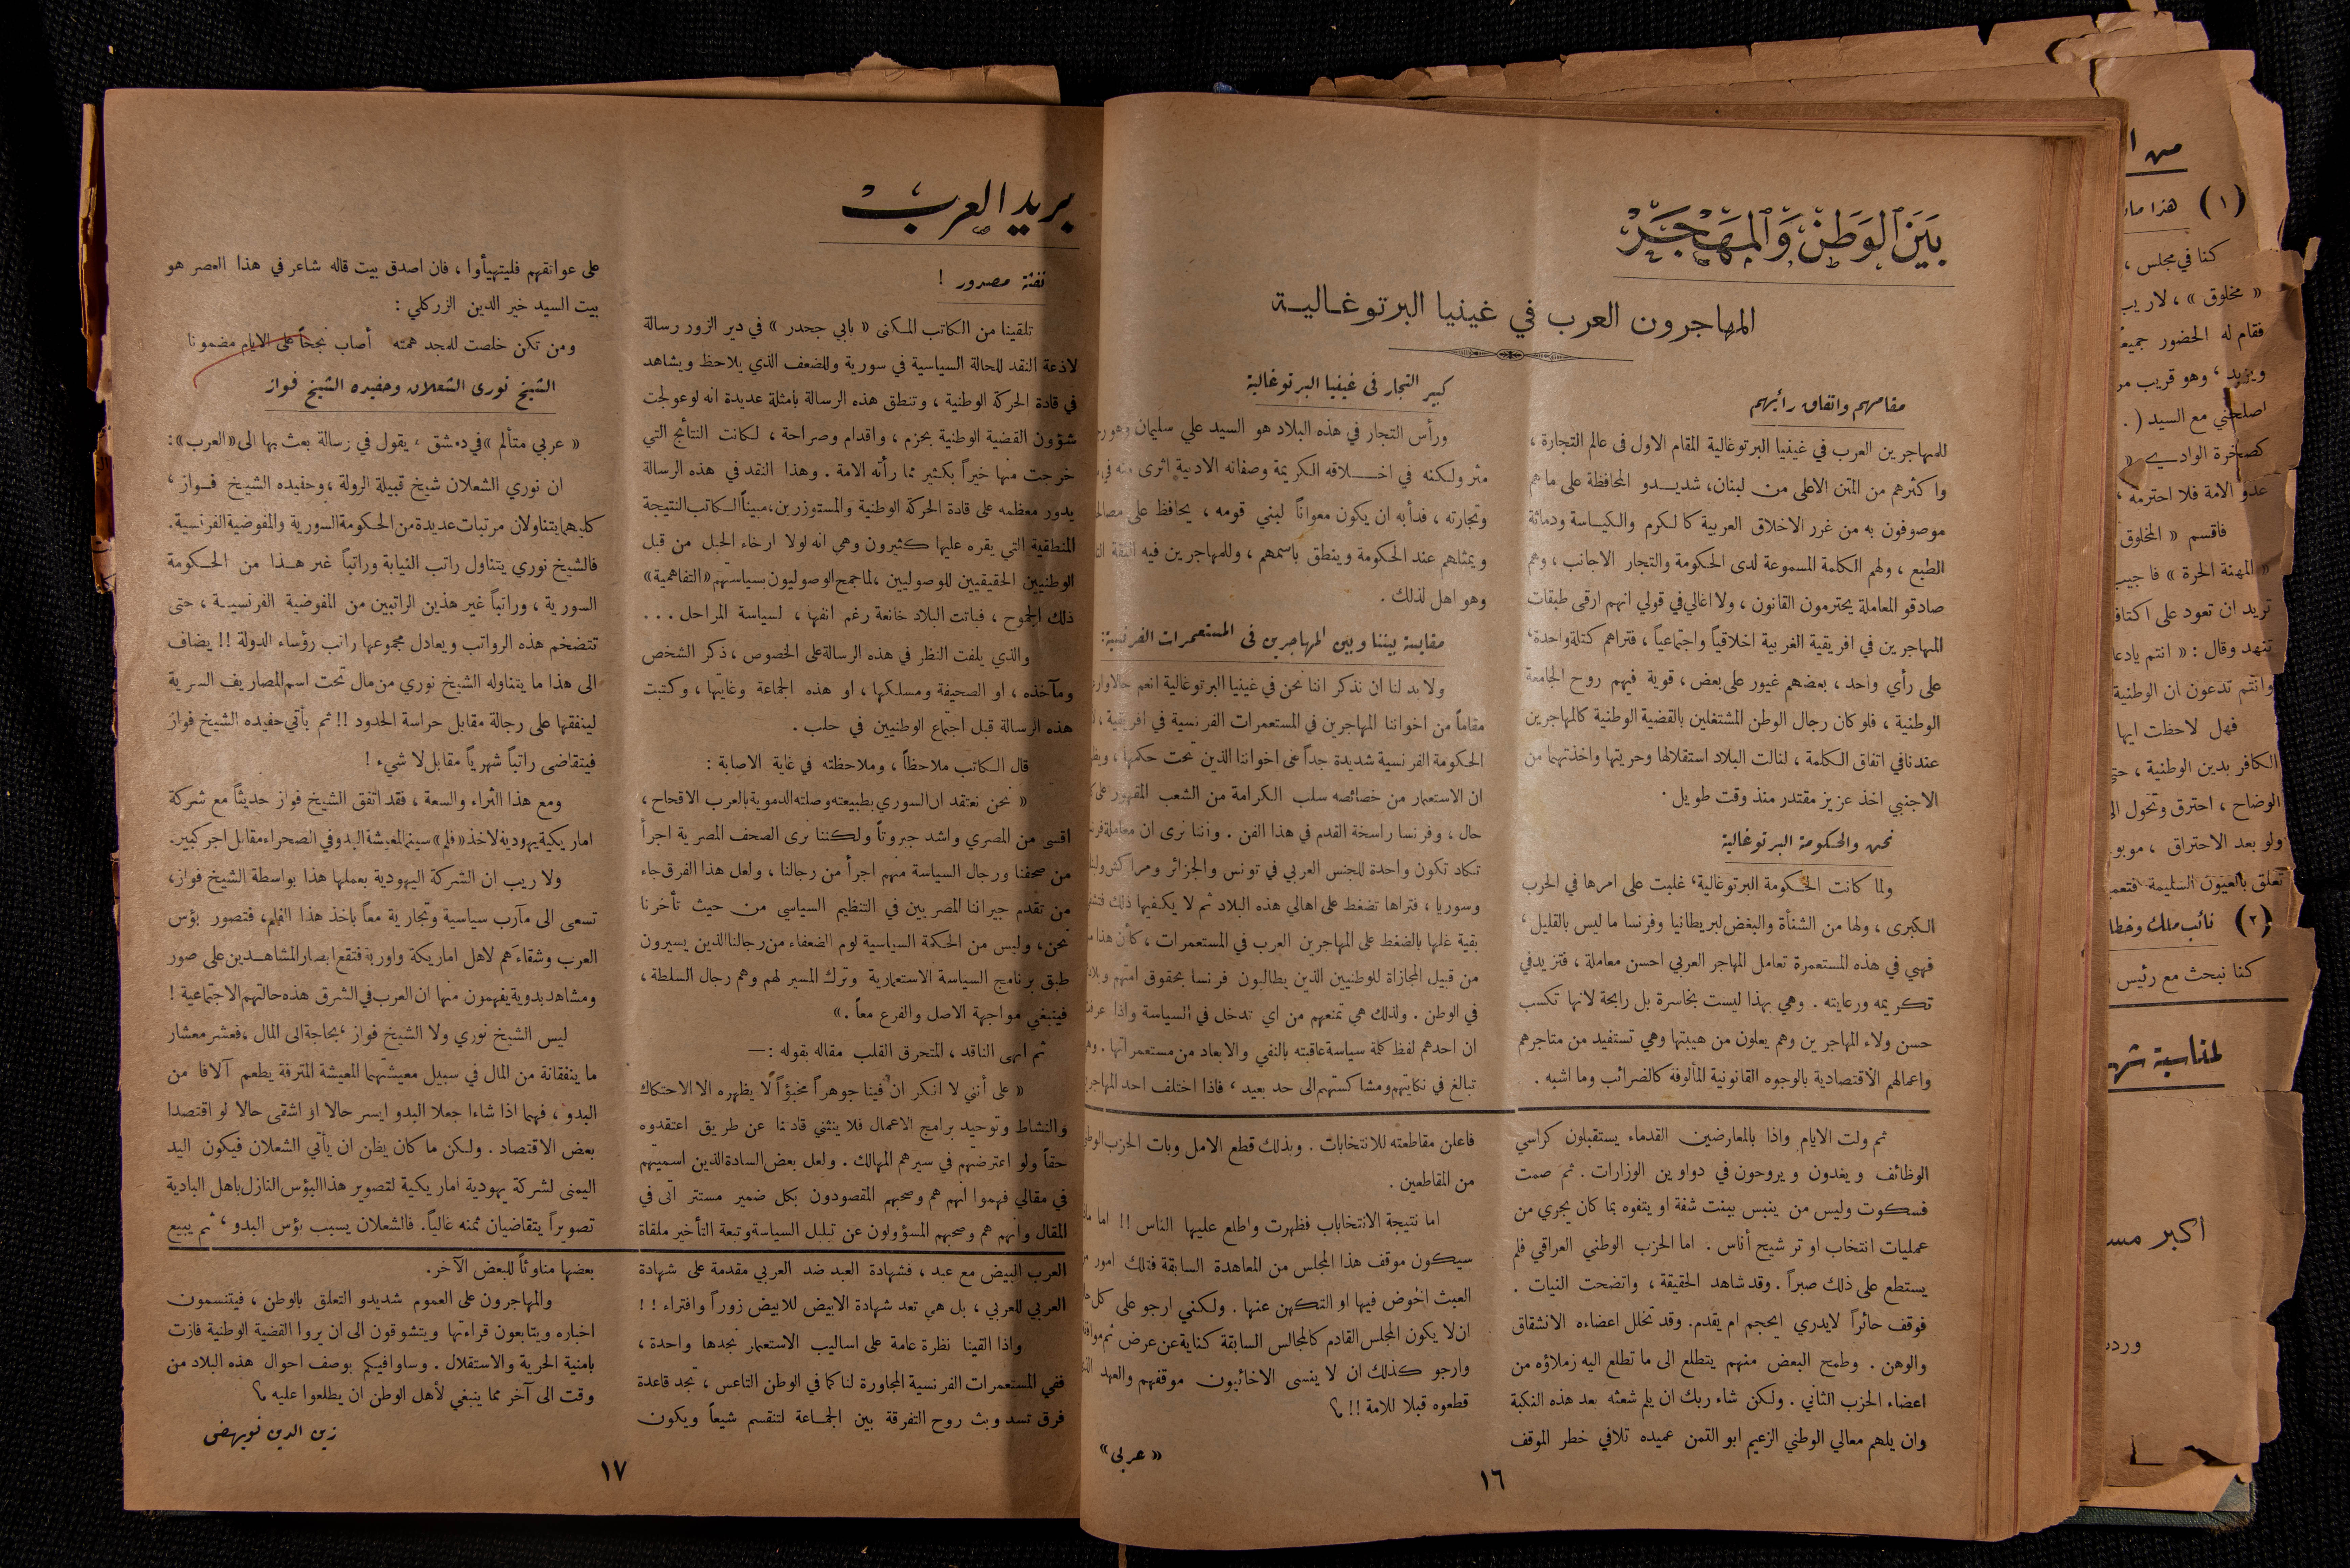 بَيَن ٱلوَطَنْ وَٱلمَهْجَرْ
المهاجرون العرب في غينيا البرتوغالية
مقامهم واتفاق رأيهم
للمهاجرين العرب في غينيا البرتوغالية المقام الاول فى عالم التجارة ،
واكثرهم من المتن الاعلى من لبنان، شديدو المحافظة على ما هم
موصوفون به من غرر الاخلاق العربية كالكرم والكياسة ودماثة
الطبع ، ولهم الكلمة المسموعة لدى الحكومة والتجار الاجانب ، وهم
صادقو المعاملة يحترمون القانون ، ولا اغالي في قولي انهم ارقى طبقات
المهاجرين في افريقية الغربية اخلاقياً واجتماعياً ، فتراهم كتلة واحدة ،
على رأي واحد ، بعضهم غيور على بعض ، قوية فيهم روح الجامعة
الوطنية ، فلو كان رجال الوطن المشتغلين بالقضية الوطنية كالمهاجرين
عندنا في اتفاق الكلمة ، لنالت البلاد استقلالها وحريتها واخذتهما من
الاجنبي اخذ عزيز مقتدر منذ وقت طويل .
نحن والحكومة البرتوغالية
ولما كانت الحكومة البرتوغالية ، غلبت على امرها في الحرب
الكبرى ، ولها من الشنأة والبغض لبريطانيا وفرنسا ما ليس بالقليل ،
فهي في هذه المستعمرة تعامل المهاجر العربي احسن معاملة ، فتزيد في
تكريمه ورعايته . وهي بهذا ليست بخاسرة بل رابحة لانها تكسب
حسن ولاء المهاجرين وهم يعلون من هيبتها وهي تستفيد من متاجرهم
واعمالهم الاقتصادية بالوجوه القانونية المألوفة كالضرائب وما اشبه .
كبير التجار فى غينيا البرتوغالية
ورأس التجار في هذه البلاد هو السيد علي سليمان
مثر ولكنه في اخلاقه الكريمة وصفاته الادبية اثرى منه
وتجارته ، فدأبه ان يكون معواناً لبني قومه ، يحافظ على
ويمثلهم عند الحكومة وينطق باسمهم ، وللمهاجرين فيه الثقة
وهو اهل لذلك .
مقايسة بيننا وبين المهاجرين فى المستعمرات الفرنسية :
ولا بد لنا ان نذكر اننا نحن في غينيا البرتوغالية انعم حالا
مقاماً من اخواننا المهاجرين في المستعمرات الفرنسية في افريقية ،
الحكومة الفرنسية شديدة جداً على اخواننا الذين تحت حكمها ،
ان الاستعمار من خصائصه سلب الكرامة من الشعب المقهور على
حال ، وفرنسا راسخة القدم في هذا الفن . واننا نرى ان معاملة
تكاد تكون واحدة للجنس العربي في تونس والجزائر ومراكش
وسوريا ، فتراها تضغط على اهالي هذه البلاد ثم لا يكفيها ذلك
بقية غلها بالضغط على المهاجرين العرب في المستعمرات ، كأن هذا
من قبيل المجازاة للوطنيين الذين يطالبون فرنسا بحقوق امتهم
في الوطن . ولذلك هي تمنعهم من اي تدخل في السياسة واذا
ان احدهم لفظ كلمة سياسة عاقبته بالنفي والابعاد من مستعمراتها .
تبالغ في نكايتهم ومشاكستهم الى حد بعيد ، فاذا اختلف احد
ثم ولت الايام واذا بالمعارضين القدماء يستقبلون كراسي
الوظائف ويغدون ويروحون في دواوين الوزارات . ثم صمت
فسكوت وليس من ينبس ببنت شفة او يتفوه بما كان يجري من
عمليات انتخاب او ترشيح أناس . اما الحزب الوطني العراقي فلم
يستطع على ذلك صبراً . وقد شاهد الحقيقة ، واتضحت النيات .
فوقف حائراً لا يدري ايحجم ام يقدم. وقد تخلل اعضاءه الانشقاق
والوهن . وطمح البعض منهم يتطلع الى ما تطلع اليه زملاؤه من
اعضاء الحزب الثاني . ولكن شاء ربك ان يلم شعثه بعد هذه النكبة
وان يلهم معالي الوطني الزعيم ابو التمن عميده تلافي خطر الموقف
فاعلن مقاطعته للانتخابات . وبذلك قطع الامل وبات الحزب
من المقاطعين .
اما نتيجة الانتخابات فظهرت واطلع عليها الناس !! اما
سيكون موقف هذا المجلس من المعاهدة السابقة فتلك امور
العبث الخوض فيها او التكهن عنها . ولكنني ارجو على كل
ان لا يكون المجلس القادم كالمجالس السابقة كناية عن عرض ثم
وارجو كذلك ان لا ينسى الاخائيون موقفهم والعهد
قطعوه قبلا للامة !! ؟
« عربي »
١٦
بريد العرب
نفثة مصدور !
تلقينا من الكاتب المكنى « بابي جحدر » في دير الزور رسالة
لاذعة النقد للحالة السياسية في سورية وللضعف الذي يلاحظ ويشاهد
في قادة الحركة الوطنية ، وتنطق هذه الرسالة بامثلة عديدة انه لو عولجت
شؤون القضية الوطنية بحزم ، واقدام وصراحة ، لكانت النتائج التي
خرجت منها خيراً بكثير مما رأته الامة . وهذا النقد في هذه الرسالة
يدور معظمه على قادة الحركة الوطنية والمستوزرين ، مبيناً الكاتب النتيجة
المنطقية التي يقره عليها كثيرون وهي انه لولا ارخاء الحبل من قبل
الوطنيين الحقيقيين للوصوليين ، لما جمح الوصوليون بسياستهم « التفاهمية »
ذلك الجموح ، فباتت البلاد خانعة رغم انفها ، لسياسة المراحل . . .
والذي يلفت النظر في هذه الرسالة على الخصوص ، ذكر الشخص
ومآخذه ، او الصحيفة ومسلكها ، او هذه الجماعة وغايتها ، وكتبت
هذه الرسالة قبل اجتماع الوطنيين في حلب .
قال الكاتب ملاحظاً ، وملاحظته في غاية الاصابة :
« نحن نعتقد ان السوري بطبيعته وصلته الدموية بالعرب الاقحاح ،
اقسى من المصري واشد جبروتاً ولكننا نرى الصحف المصرية اجرأ
من صحفنا ورجال السياسة منهم اجرأ من رجالنا ، ولعل هذا الفرق جاء
من تقدم جيراننا المصريين في التنظيم السياسي من حيث تأخرنا
نحن، وليس من الحكمة السياسية لوم الضعفاء من رجالنا الذين يسيرون
طبق برنامج السياسة الاستعمارية وترك المسير لهم وهم رجال السلطة ،
فينبغي مواجهة الاصل والفرع معاً . »
ثم انهى الناقد ، المتحرق القلب مقاله بقوله :—
« على أنني لا انكر ان فينا جوهراً مخبوّاً لا يظهره الا الاحتكاك
والنشاط وتوحيد برامج الاعمال فلا ينثني قادتنا عن طريق اعتقدوه
حقاً ولو اعترضتهم في سيرهم المهالك . ولعل بعض السادة الذين اسميتهم
في مقالي فهموا انهم هم وصحبهم المقصودون بكل ضمير مستتر اتى في
المقال وانهم هم وصحبهم المسؤولون عن تبلبل السياسة وتبعة التأخير ملقاة
على عواتقهم فليتهيأوا ، فان اصدق بيت قاله شاعر في هذا العصر هو
بيت السيد خير الدين الزركلي :
ومن تكن خلصت للمجد همته أصاب نجحاً على الايام مضمونا
الشيخ نوري الشعلان وحفيده الشيخ فواز
« عربي متألم » في دمشق ، يقول في رسالة بعث بها الى « العرب » :
ان نوري الشعلان شيخ قبيلة الرولة ، وحفيده الشيخ فواز ،
كلاهما يتناولان مرتبات عديدة من الحكومة السورية والمفوضية الفرنسية .
فالشيخ نوري يتناول راتب النيابة وراتباً غير هذا من الحكومة
السورية ، وراتباً غير هذين الراتبين من المفوضية الفرنسية ، حتى
تتضخم هذه الرواتب ويعادل مجموعها راتب رؤساء الدولة !! يضاف
الى هذا ما يتناوله الشيخ نوري من مال تحت اسم المصاريف السرية
لينفقها على رجالة مقابل حراسة الحدود !! ثم يأتي حفيده الشيخ فواز
فيتقاضى راتباً شهرياً مقابل لا شيء !
ومع هذا الثراء والسعة ، فقد اتفق الشيخ فواز حديثاً مع شركة
اماريكية يهودية لاخذ « فلم » سينما لمعيشة البدو في الصحراء مقابل اجر كبير .
ولا ريب ان الشركة اليهودية بعملها هذا بواسطة الشيخ فواز ،
تسعى الى مآرب سياسية وتجارية معاً باخذ هذا الفلم ، فتصور بؤس
العرب وشقاءهم لاهل اماريكة واوربة فتقع ابصار المشاهدين على صور
ومشاهد بدوية يفهمون منها ان العرب في الشرق هذه حالتهم الاجتماعية !
ليس الشيخ نوري ولا الشيخ فواز ، بحاجة الى المال ، فعشر معشار
ما ينفقانة من المال في سبيل معيشتهما المعيشة المترفة يطعم آلافا من
البدو ، فهما اذا شاءا جعلا البدو ايسر حالا او اشقى حالا لو اقتصدا
بعض الاقتصاد . ولكن ما كان يظن ان يأتي الشعلان فيكون اليد
اليمنى لشركة يهودية اماريكية لتصوير هذا البؤس النازل باهل البادية
تصويراً يتقاضيان ثمنه غالياً . فالشعلان يسبب بؤس البدو ، ثم يبيع
العرب البيض مع عبد ، فشهادة العبد ضد العربي مقدمة على شهادة
العربي للعربي ، بل هي تعد شهادة الابيض للابيض زوراً وافتراء ! !
واذا القينا نظرة عامة على اساليب الاستعمار نجدها واحدة ،
ففي المستعمرات الفرنسية المجاورة لنا كما في الوطن التاعس ، تجد قاعدة
فرق تسد وبث روح التفرقة بين الجماعة لتنقسم شيعاً ويكون
بعضها مناوئاً للبعض الآخر.
والمهاجرون على العموم شديدو التعلق بالوطن ، فيتنسمون
اخباره ويتابعون قراءتها ويتشوقون الى ان يروا القضية الوطنية فازت
بامنية الحرية والاستقلال . وساوافيكم بوصف احوال هذه البلاد من
وقت الى آخر مما ينبغي لأهل الوطن ان يطلعوا عليه ؟
زين الدين نويهض
١٧
من
(١) هذا
كنا في مجلس ،
« مخلوق » ، لا ريب
فقام له الحضور
ويزيد ، وهو قريب
اصلحني مع السيد ( .
كصخرة الوادي «
عدو الامة فلا احترمه ،
فاقسم « المخلوق
« المهنة الحرة »
تريد ان تعود على
تنهد وقال : « انتم
وانتم تدعون ان الوطنية
فهل لاحظت ايها
الكافر بدين الوطنية ،
الوضاح ، احترق وتحول
ولو بعد الاحتراق ،
تعلق بالعيون السليمة
(٢) نائب ملك
كنا نبحث مع رئيس
لمناسبة
اكبر